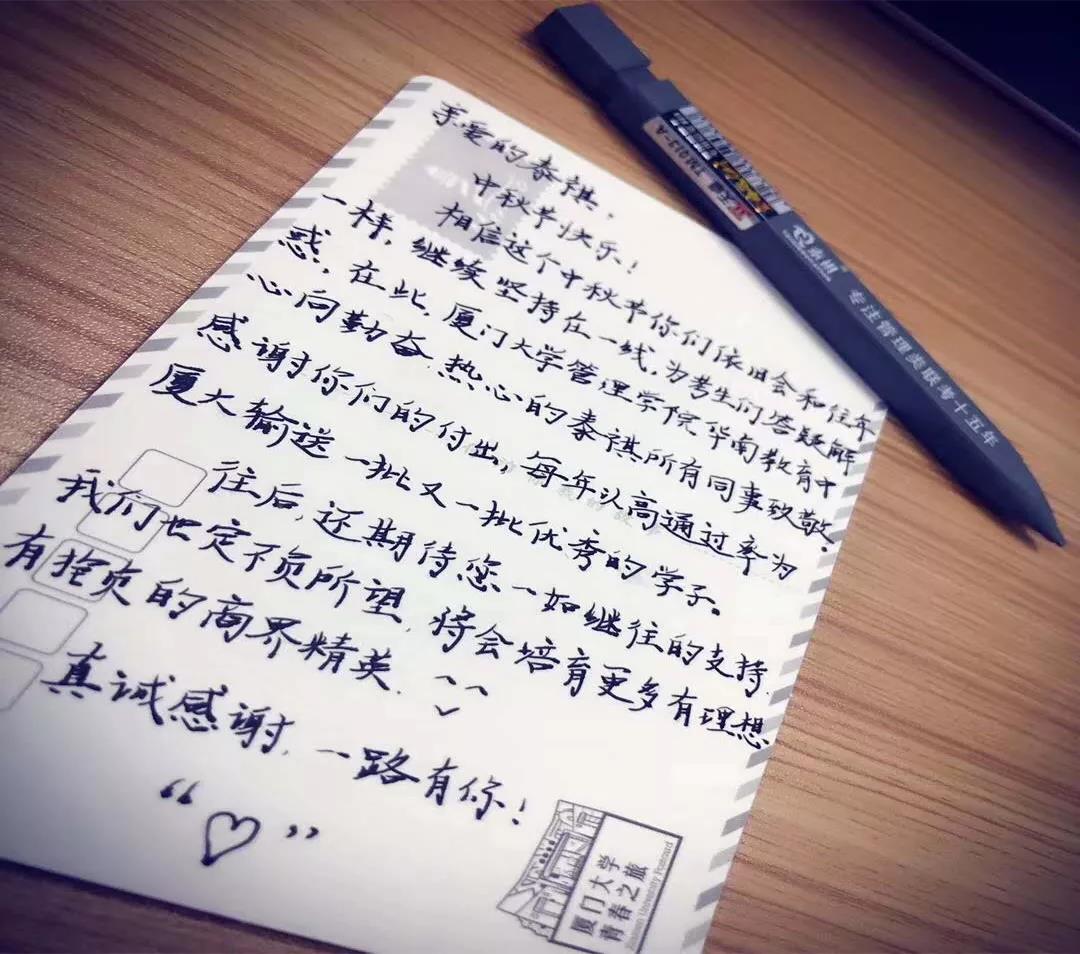 亲爱的泰祺,
中秋节快乐!
相信这个中秋节你们依旧会和往年
一样,继续坚持在一线,为考生们答题解
惑,在此,厦门大学管理学院华南教育中
心向勤奋、热心的泰祺所有同事致敬.
感谢你们的付出,每年以高通过率为
厦大输送一批又一批优秀的学子。
往后,还期待您一如继往的支持,
我们也定不负所望,将会培育更多有理想
有抱负的商界精英.^ˇ^
真诚感谢,一路有你!
“♡”
厦门大学
青春之旅
Xiamen University Postcard
TM013-A
泰祺
专注管理类联考十五年